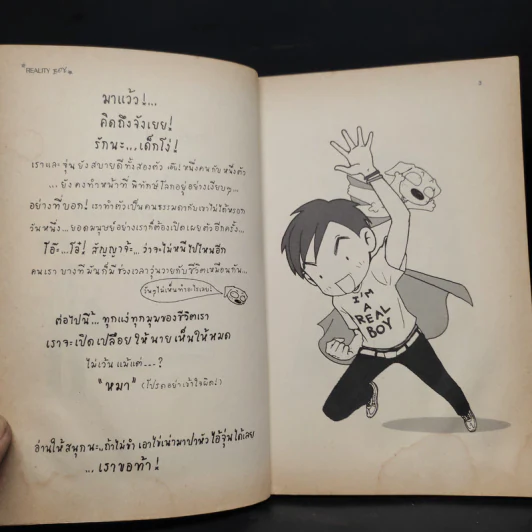 "REALITY BOY"
มาแว้ว!...
คิดถึงจังเยย!
รักนะ...เด็กโง่!
เราและ ซุ่น ยัง สบายดี ทั้งสองตัว เอ๊ย! หนึ่งคน กับ หนึ่งตัว
...ยัง คงทำหน้าที่ พิทักษ์โลกอยู่อย่างเงียบๆ...
อย่างที่บอก! เราทำตัวเป็นคนธรรมดากับเขาไม่ได้หรอก
วันหนึ่ง...ยอดมนุษย์อย่างเราก็ต้องเปิดเผยตัวอีกครั้ง...
โอ๊ะ...โอ๋! สัญญาจ้ะ...ว่าจะไม่หนีไปไหนอีก
คนเรา บางทีมันก็มี ช่วงเวลาวุ่นวายกับชีวิตเหมือนกัน...
วันๆไม่เห็นทำอะไรเลย!
ต่อไปนี้... ทุกแง่ทุกมุมของชีวิตเรา
เราจะเปิดเปลือย ให้นาย เห็นให้หมด
ไม่เว้น แม้แต่...?
"หมา" (โปรดอย่าเข้าใจผิด!)
อ่านให้สนุกนะ..ถ้าไม่ขำ เอาไข่เน่ามาปาหัวไอ้ซุ่นได้เลย
...เราขอท้า!
3
I'M
A
REAL
BOY